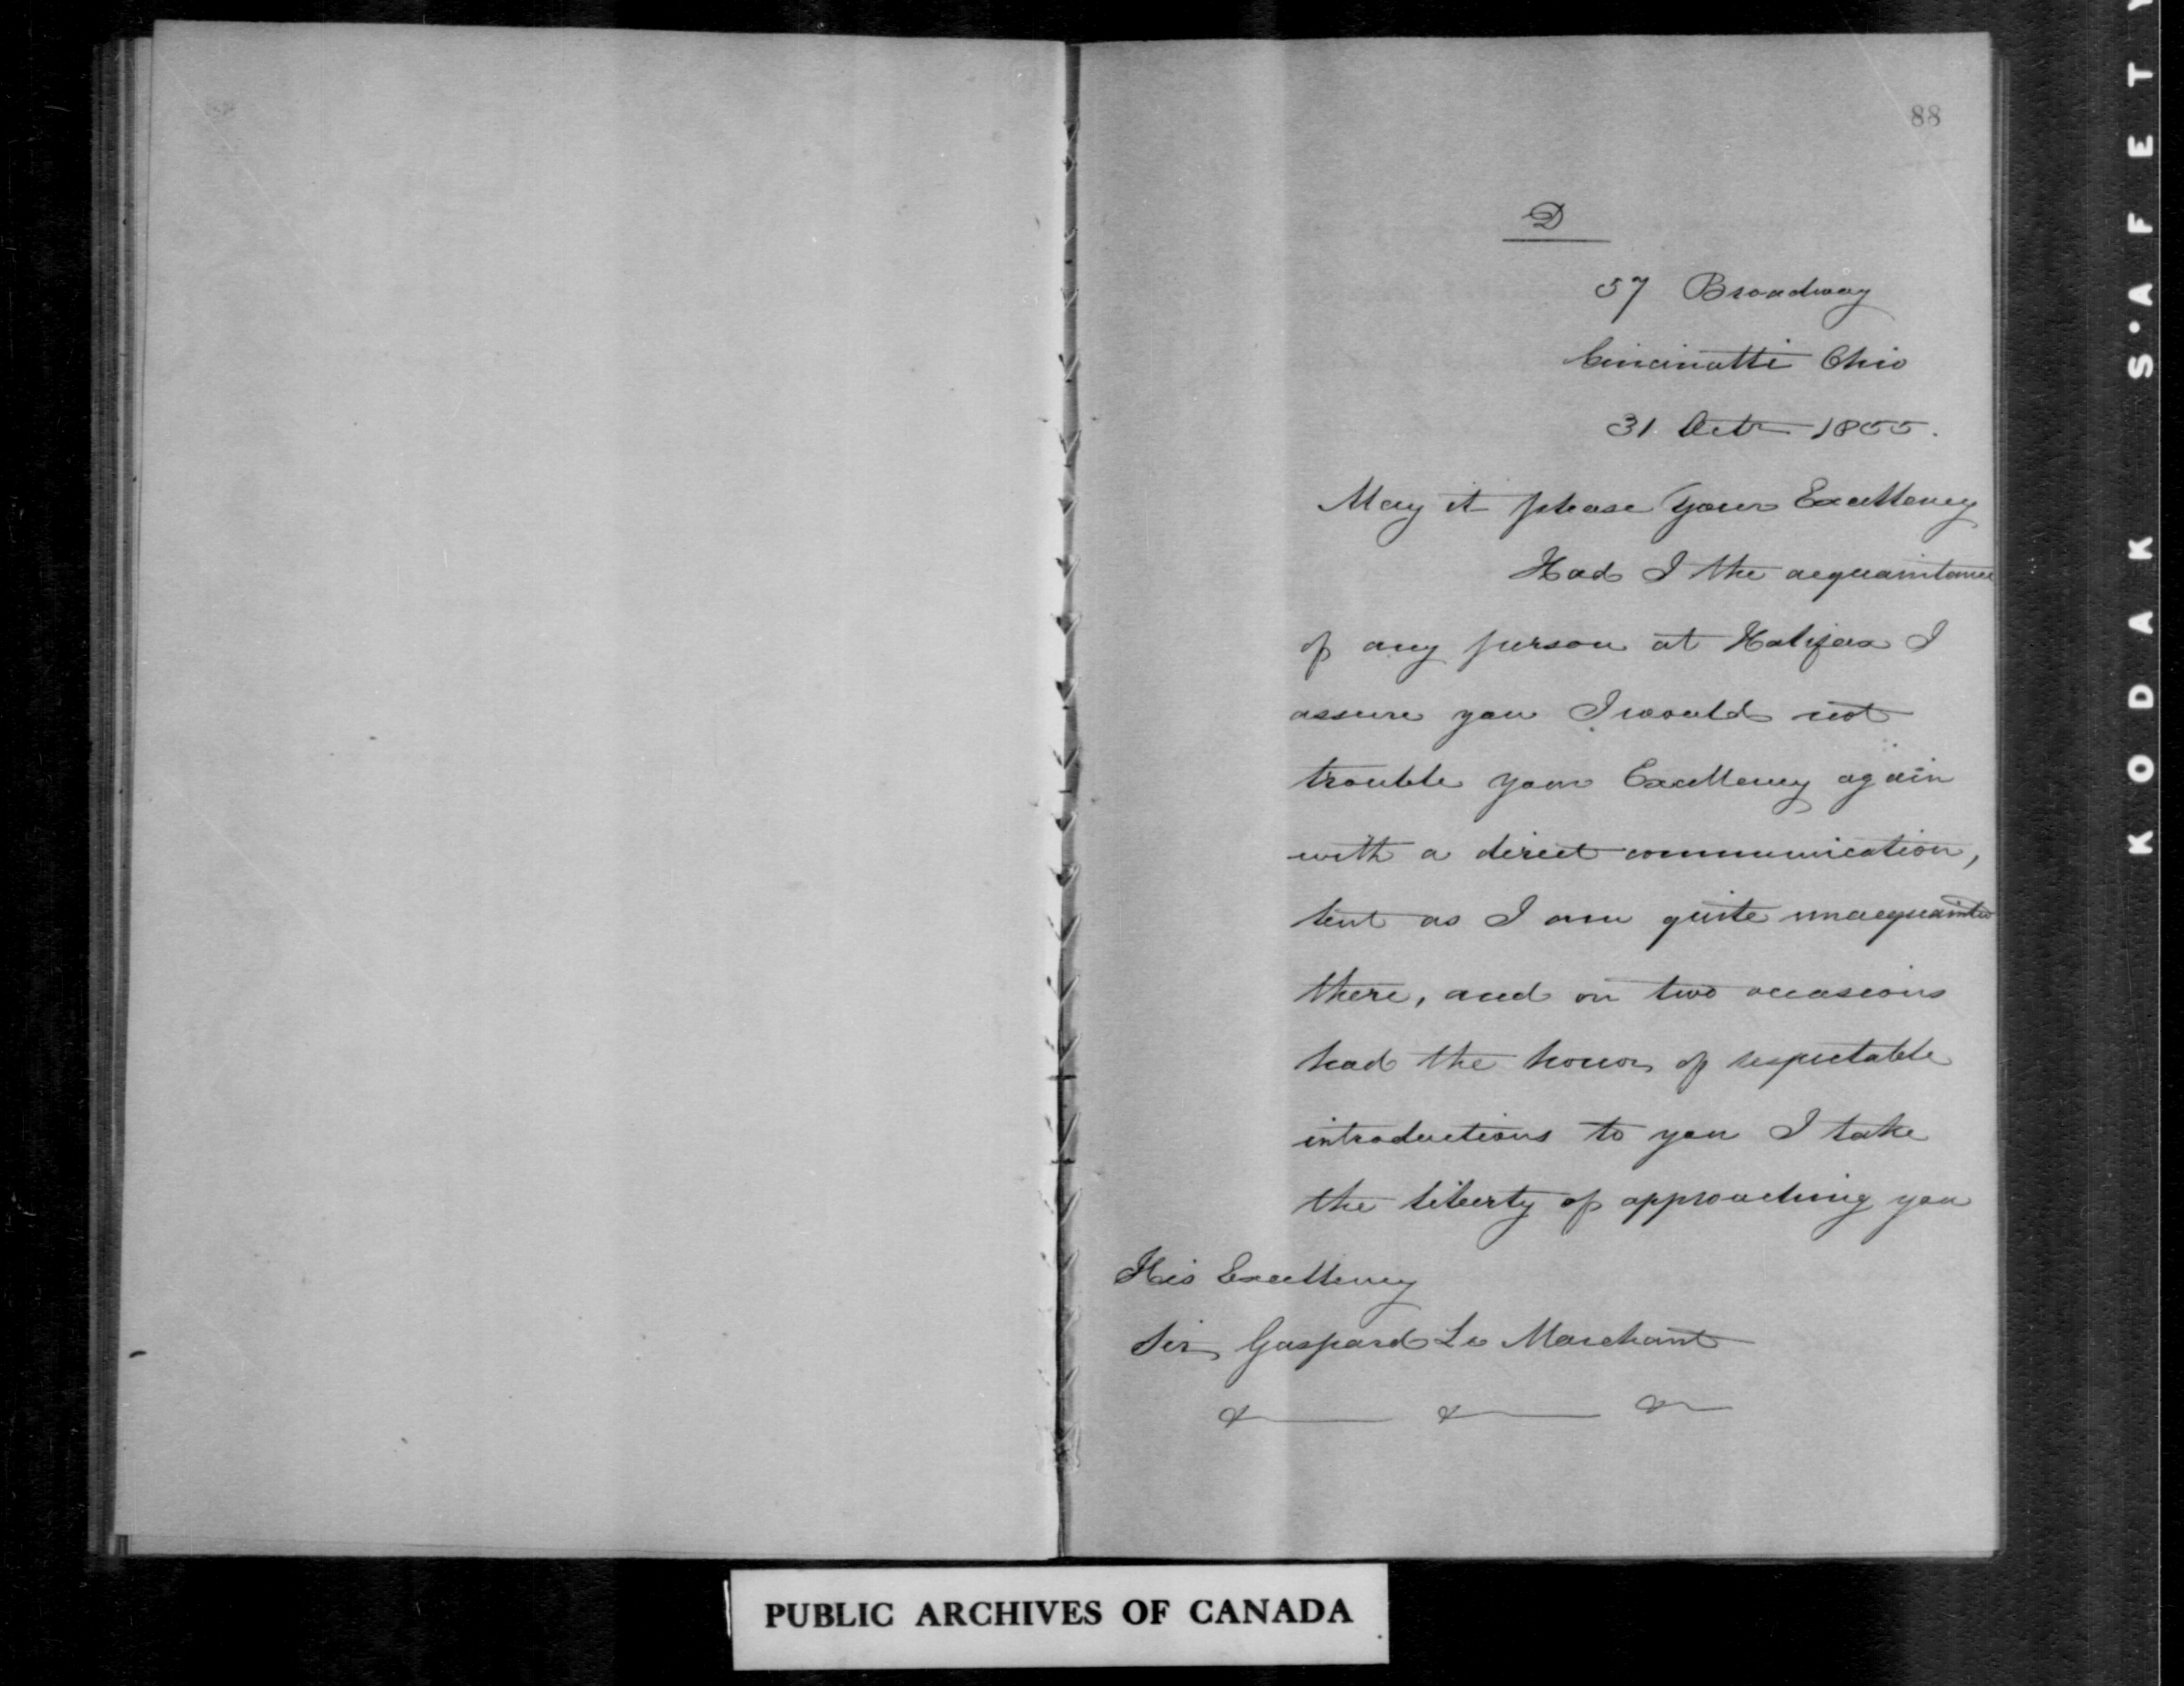 88
D
57 Broadway
Cincinatti Ohio
31 Octr 1855.
May it please your Excellency
Had I the acquaintance
of any person at Halifax I
assure you I would not
trouble your Excellency again
with a direct communication,
but as I am quite unacquainted
there, and on two occasions
had the honor of respectable
introductions to you I take
the liberty of approaching you
His Excellency
Sir Gaspard Le Marchant
& & &
PUBLIC ARCHIVES OF CANADA
KODAK S'AFETY